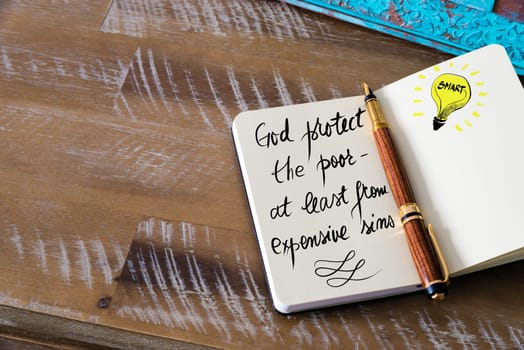 God protect
the poor -
at least from
expensive sins
SMART